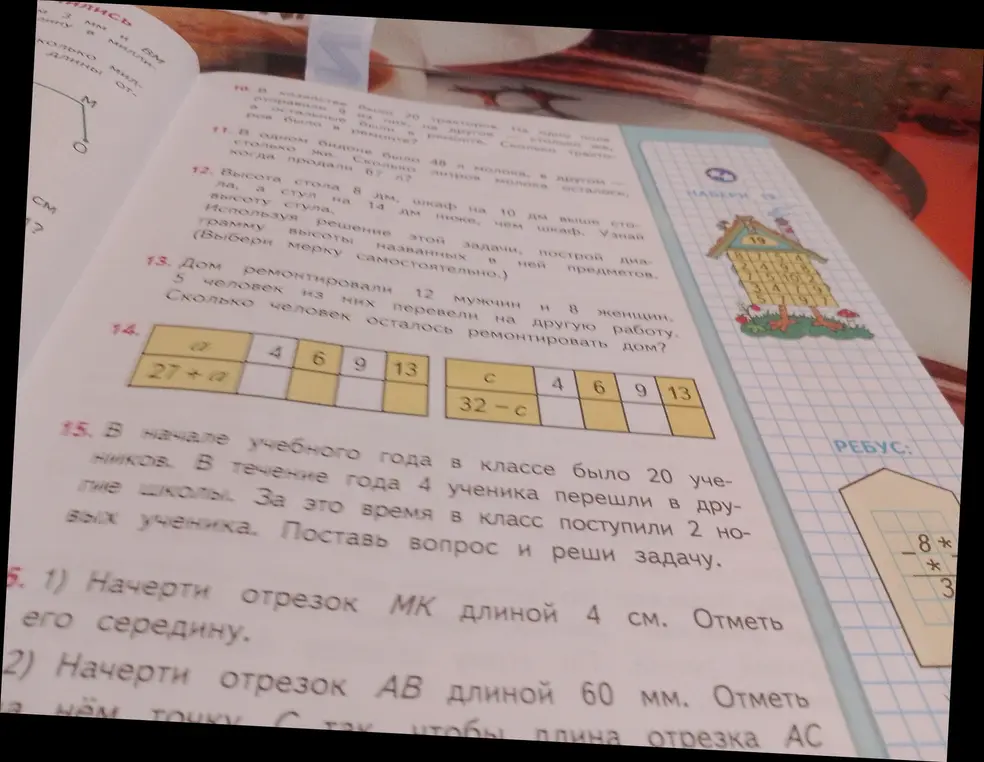 о 3 мм и ВМ
в милли-
колько мил-
длины от-
М
О
см
?
10. В хозяйстве было 20 тракторов. На одно поле
отправили 8 из них, на другое — столько же,
а остальные были в ремонте. Сколько тракто-
ров было в ремонте?
11. В одном бидоне было 48 л молока, в другом —
столько же. Сколько литров молока осталось,
когда продали 67 л?
12. Высота стола 8 дм, шкаф на 10 дм выше сто-
ла, а стул на 14 дм ниже, чем шкаф. Узнай
высоту стула.
Используя решение этой задачи, построй диа-
грамму высоты названных в ней предметов.
(Выбери мерку самостоятельно.)
13. Дом ремонтировали 12 мужчин и 8 женщин.
5 человек из них перевели на другую работу.
Сколько человек осталось ремонтировать дом?
14.
a 4 6 9 13
27 + a
c 4 6 9 13
32 − c
15. В начале учебного года в классе было 20 уче-
ников. В течение года 4 ученика перешли в дру-
гие школы. За это время в класс поступили 2 но-
вых ученика. Поставь вопрос и реши задачу.
6. 1) Начерти отрезок МК длиной 4 см. Отметь
его середину.
2) Начерти отрезок АВ длиной 60 мм. Отметь
а нём точку С так, чтобы длина отрезка АС
НАБЕРИ 19
19
РЕБУС:
− 8 *
*
3